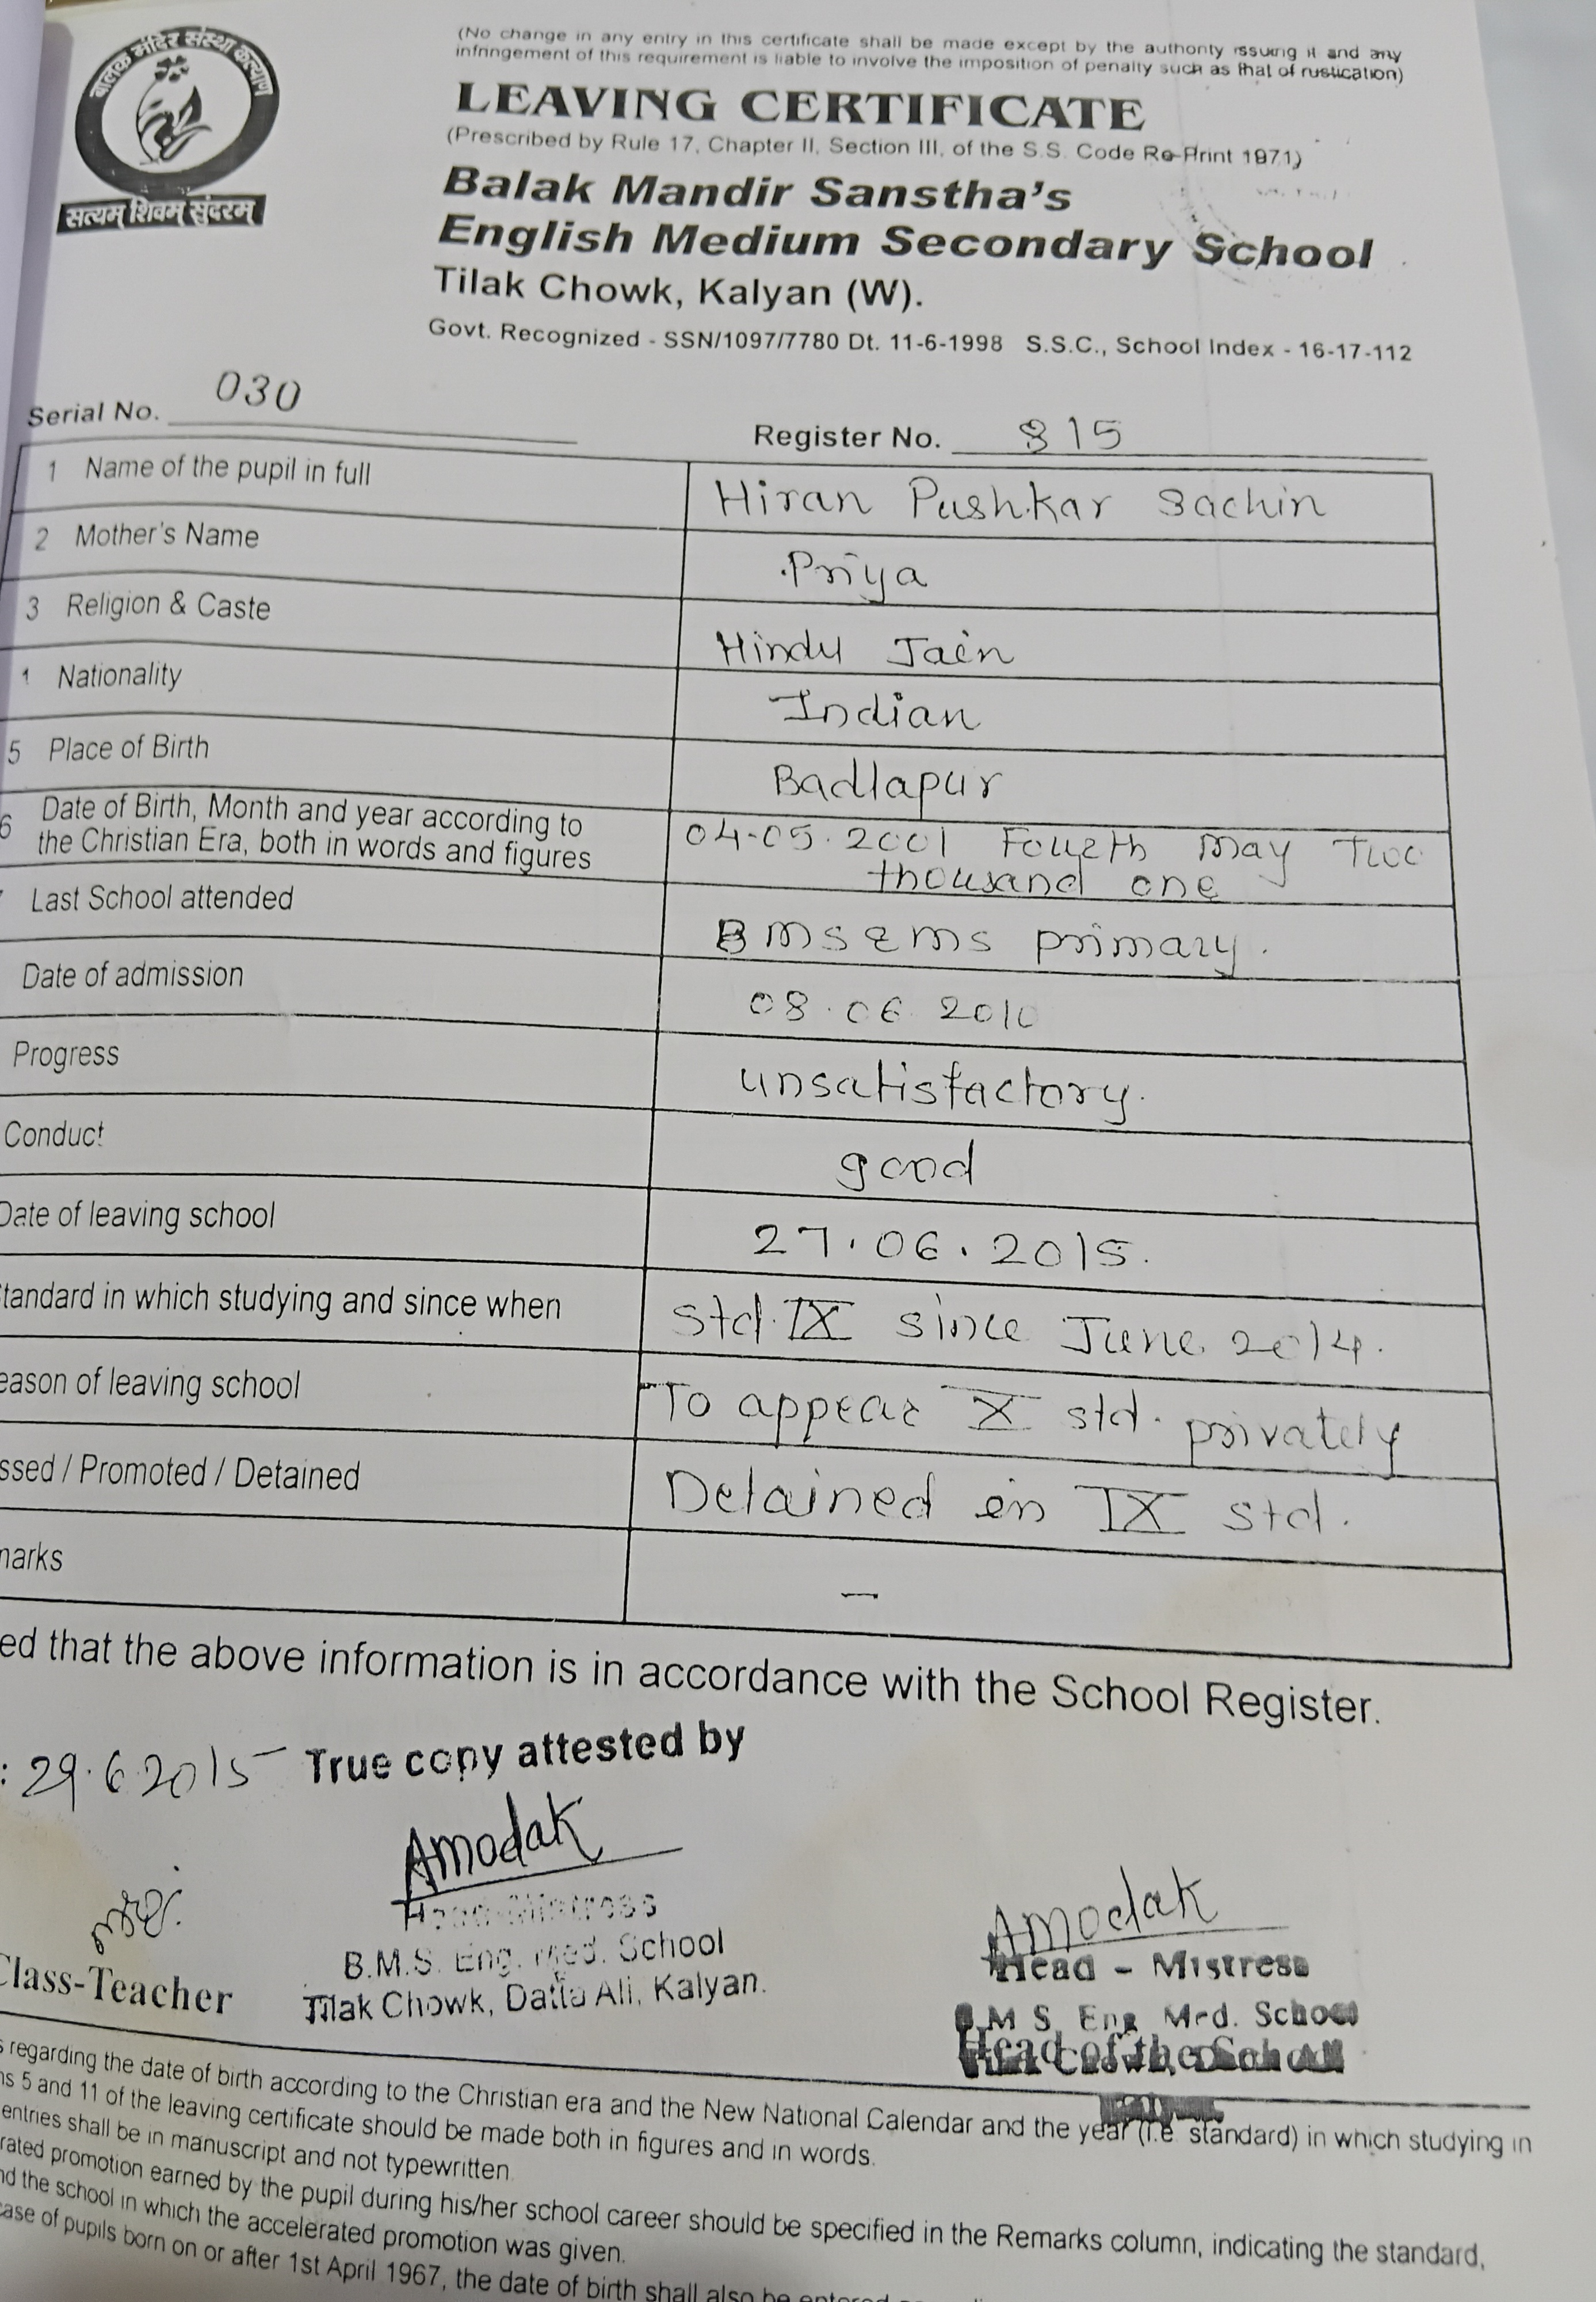 बालक मंदिर संस्था कल्याण
सत्यम् शिवम् सुंदरम्
(No change in any entry in this certificate shall be made except by the authority issuing it and any
infringement of this requirement is liable to involve the imposition of penalty such as that of rustication)
LEAVING CERTIFICATE
(Prescribed by Rule 17, Chapter II, Section III, of the S.S. Code Re-Print 1971)
Balak Mandir Sanstha's
English Medium Secondary School
Tilak Chowk, Kalyan (W).
Govt. Recognized - SSN/1097/7780 Dt. 11-6-1998 S.S.C., School Index - 16-17-112
Serial No. 030
Register No. 815
1 Name of the pupil in full Hiran Pushkar Sachin
2 Mother's Name Priya
3 Religion & Caste Hindu Jain
Nationality Indian
5 Place of Birth Badlapur
6 Date of Birth, Month and year according to
the Christian Era, both in words and figures
04-05.2001 Fourth May Two
thousand one
Last School attended BMSEMS primary.
Date of admission 08.06.2010
Progress unsatisfactory.
Conduct good
Date of leaving school 27.06.2015.
tandard in which studying and since when Std.IX since June 2014.
eason of leaving school To appear X std. privately
ssed / Promoted / Detained Detained in IX std.
narks –
ed that the above information is in accordance with the School Register.
: 29.6.2015 True copy attested by
Amodak
Head-Mistress
B.M.S. Eng. Med. School
Tilak Chowk, Datta Ali, Kalyan.
Class-Teacher
Amodak
Head - Mistress
B.M S. Eng Med. School
Head of the School
s regarding the date of birth according to the Christian era and the New National Calendar and the year (i.e. standard) in which studying in
ns 5 and 11 of the leaving certificate should be made both in figures and in words.
entries shall be in manuscript and not typewritten
rated promotion earned by the pupil during his/her school career should be specified in the Remarks column, indicating the standard,
nd the school in which the accelerated promotion was given.
case of pupils born on or after 1st April 1967, the date of birth shall also be